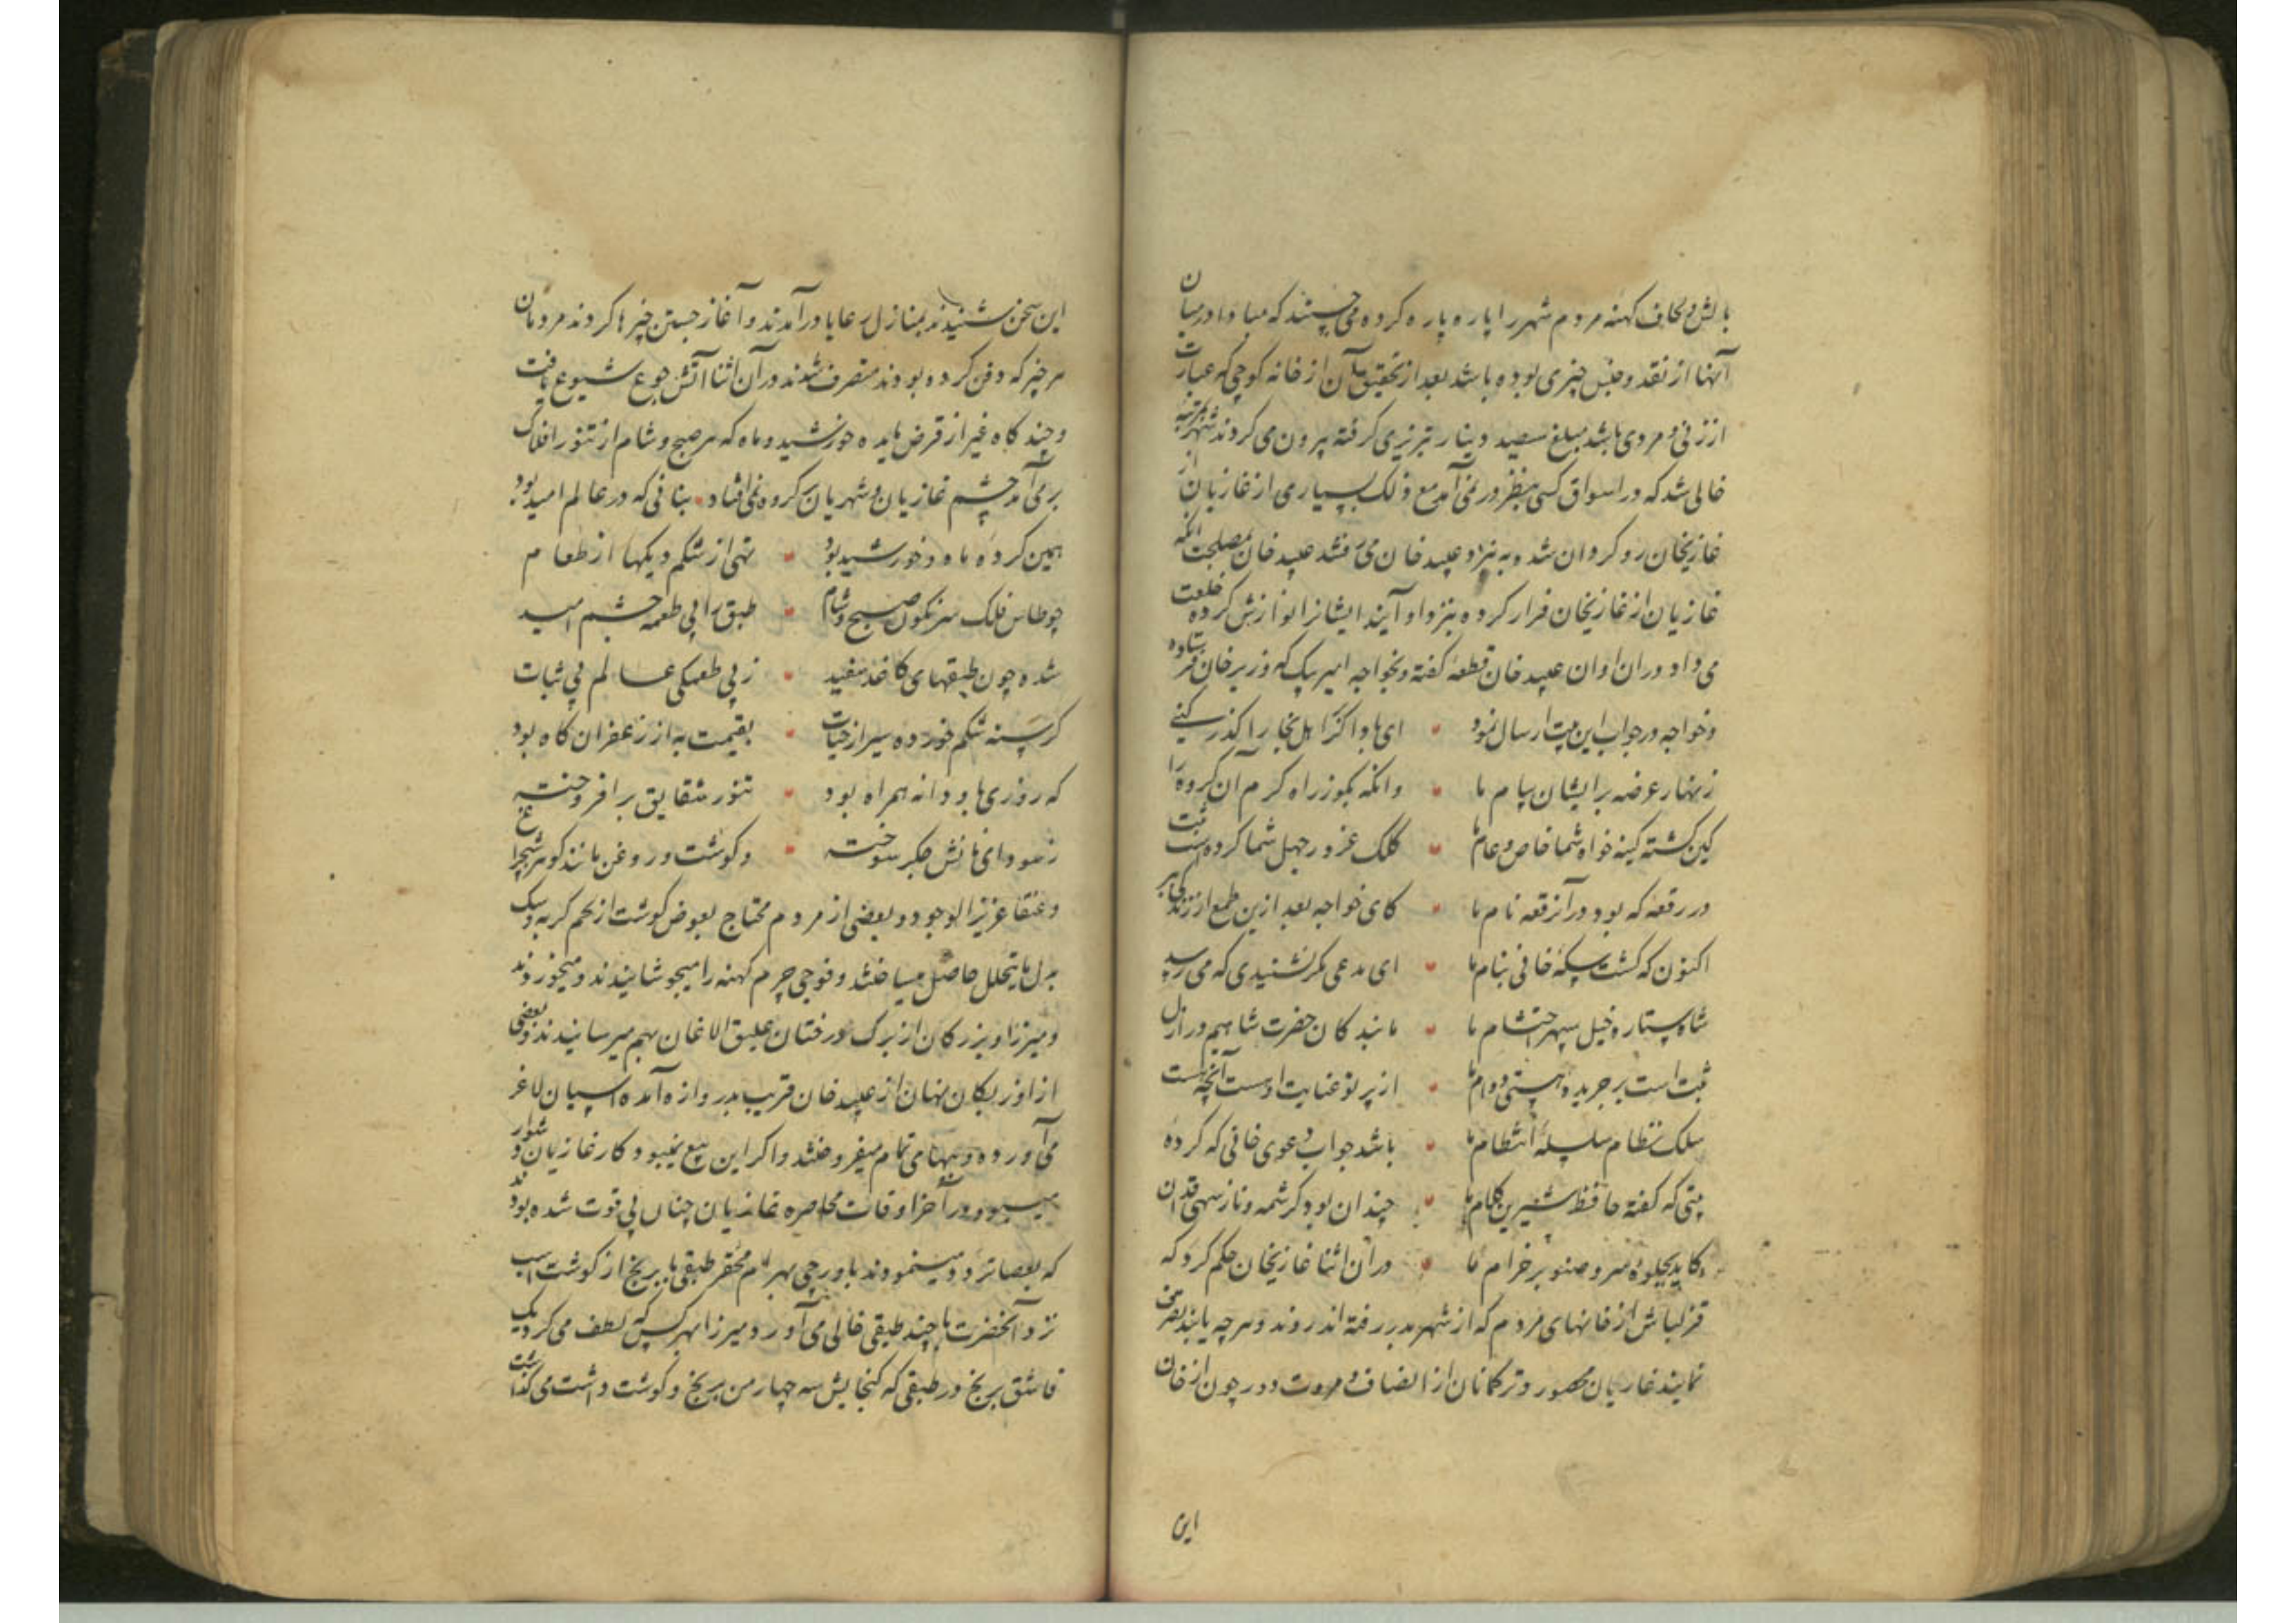 بالش و لحاف کهنه مردم شهر را پاره پاره کرده می جستند که مبادا در میان
آنها از نقد و جنس چیزی بوده باشد بعد از تحقیق آن از خانه کوچی که عبارت
از زنی و مردی باشد مبلغ سیصد دینار تبریزی گرفته بیرون می کردند شهر بمرتبه
خالی شد که در اسواق کسی بنظر در نمی آمد مع ذلک بسیاری از غازیان از
غازیخان رو کردان شده به نزد عبید خان می رفتند عبید خان بمصلحت آنکه
غازیان از غازیخان فرار کرده بنزد او آیند ایشانرا نوازش کرده خلعت
می داد و در آن اوان عبید خان قطعه گفته و بخواجه امیر بیک که وزیر خان فرستاده
و خواجه در جواب این بیت ارسال نمود • ای باد اگر اهل بخارا گذر کنی
زنهار عرضه بر ایشان پیام ما • وانکه بگو ز راه کرم آن گروه را
کین گشته کینه خواه شما خاص و عام ما • کلک غرور جهل شما کرده است ثبت
در رقعه که بود در آن رقعه نام ما • کای خواجه بعد ازین طمع از زندگی ببر
اکنون که گشت سکه خانی بنام ما • ای مدعی مگر نشنیدی که می رسد
شاه ستاره خیل سپهر احتشام ما • ما بندگان حضرت شاهیم در ازل
ثبت است بر جریده هستی دوام ما • از پرتو عنایت اوست آنچه هست
سلک نظام سلسله انتظام ما • باشد جواب دعوی خانی که کرده
بیتی که گفته حافظ شیرین کلام ما • چندان بود کرشمه و ناز سهی قدان
کاید بجلوه سرو صنوبر خرام ما • در آن اثنا غازیخان حکم کرد که
قزلباش از خانهای مردم که از شهر بدر رفته اند روند و هر چه یابند تصرف
نمایند غازیان محصور و ترکمانان از انصاف و مروت دور چون از خان
این
این سخن شنیدند بمنازل رعایا درآمدند و آغاز جستن چیزها کردند مردمان
هر چیز که دفن کرده بودند متصرف شدند در آن اثنا آتش جوع شیوع یافت
و چند گاه غیر از قرص مایده خورشید و ماه که هر صبح و شام از تنور افلاک
بر می آمد چشم غازیان و شهریان بگروه نمی افتاد • بنانی که در عالم امید بود
همین گرده ماه و خورشید بود • تهی از شکم دیکها از طعام
چو طاس فلک سرنگون صبح و شام • طبق را پی طعمه چشم امید
شده چون طبقهای کاغذ سفید • ز بی طعمگی عالم بی ثبات
گرسنه شکم خورده سیر از حیات • بقیمت به از زعفران کاه بود
که روزی ما بود دانه همراه بود • تنور شقایق برافروخته
ز سودای نانش جگر سوخته • و گوشت و روغن مانند گوهر شبچراغ
و عنقا عزیز الوجود و بعضی از مردم محتاج بعوض گوشت از لحم گربه و سک
بدل ما یتحلل حاصل میساختند و فوجی چرم کهنه را میجوشانیدند و میخوردند
و میرزا و بزرگان از برک درختان علیق الاغان بهم میرسانیدند و بعضی
از اوزبکان نهان از عبید خان قریب بدروازه آمده اسپان لاغر
می آورده و ببهای تمام میفروختند و اگر این بیع نمیبود کار غازیان دشوار
میبود و در آخر اوقات محاصره غازیان چنان بی قوت شده بودند
که بعصا تردد مینمودند باورچی بهرام محقر طبقی با برنج از گوشت اسب
نزد آنحضرت با چند طبقی خالی می آورد و میرزا بهر کس که لطف می کرد یک
قاشق برنج در طبقی که گنجایش سه چهار من برنج و گوشت داشت می گذاشت